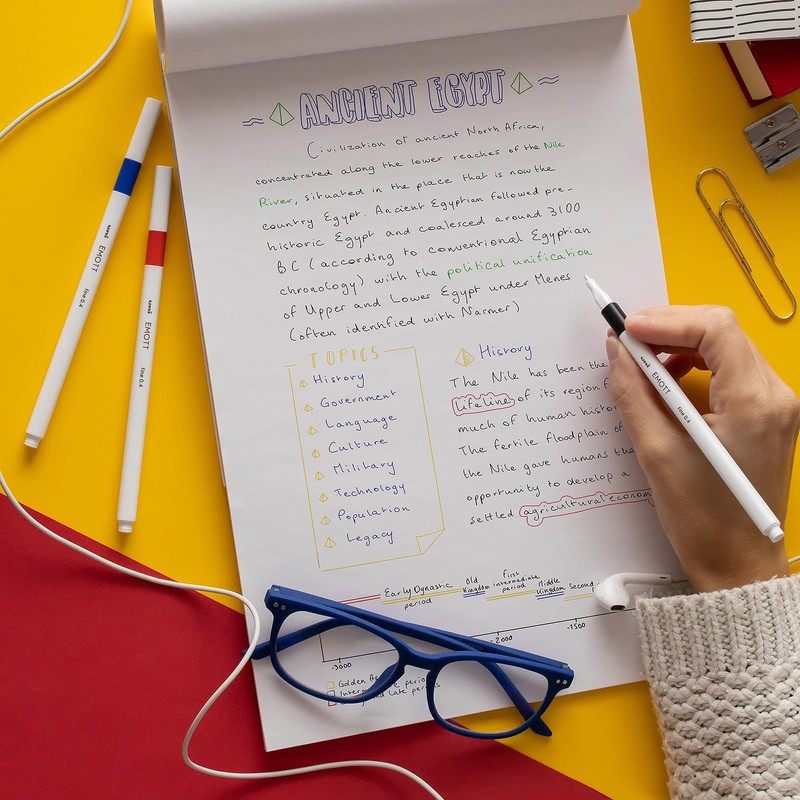 ANCIENT EGYPT
Civilization of ancient North Africa,
concentrated along the lower reaches of the Nile
River, situated in the place that is now the
country Egypt. Ancient Egyptian followed pre-
historic Egypt and coalesced around 3100
BC (according to conventional Egyptian
chronology) with the political unification
of Upper and Lower Egypt under Menes
(often identified with Narmer)
TOPICS
History
Government
Language
Culture
Military
Technology
Population
Legacy
History
The Nile has been the
lifeline of its region f
much of human histor
The fertile floodplain of
the Nile gave humans the
opportunity to develop a
settled agricultural econom
Early Dynastic
period
Old
Kingdom
First
intermediate
period
Middle
Kingdom
Second
-3000
-2000
-1500
Golden
Late
uni EMOTT fine 0.4
uni EMOTT fine 0.4
uni EMOTT fine 0.4